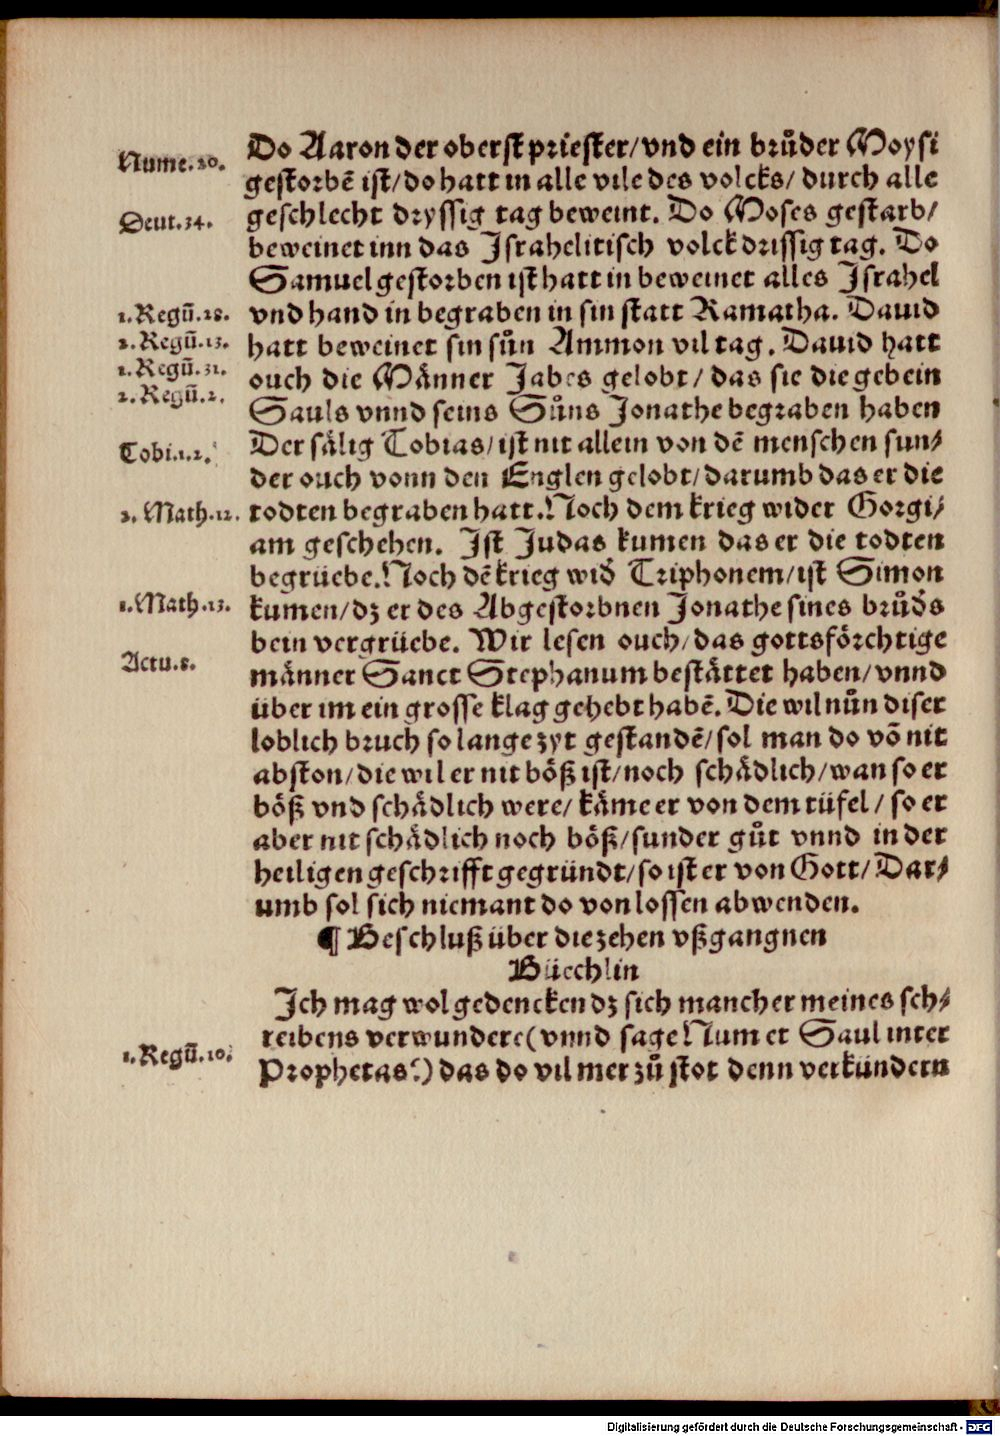 Nume.20.
Deut.34.
1.Regū.28.
2.Regū.13.
1.Regū.31.
2.Regū.2.
Tobi.1.2.
2.Math.12.
1.Math.13.
Actu.8.
1.Regū.10.
Do Aaron der oberst priester/vnd ein brůder Moysi
gestorbē ist/do hatt in alle vile des volcks/ durch alle
geschlecht dryssig tag beweint. Do Moses gestarb/
beweinet inn das Jsrahelitisch volck drissig tag. Do
Samuel gestorben ist hatt in beweinet alles Jsrahel
vnd hand in begraben in sin statt Ramatha. Dauid
hatt beweinet sin sůn Ammon vil tag. Dauid hatt
ouch die Männer Jabes gelobt/ das sie die gebein
Sauls vnnd seins Sůns Jonathe begraben haben
Der sälig Tobias/ist nit allein von dē menschen sun/
der ouch vonn den Englen gelobt/darumb das er die
todten begraben hatt. Noch dem krieg wider Gorgi/
am geschehen. Jst Judas kumen das er die todten
begrüebe. Noch dē krieg wið Triphonem/ist Simon
kumen/dz er des Abgestorbnen Jonathe sines brůðs
bein vergrüebe. Wir lesen ouch/das gottsförchtige
männer Sanct Stephanum bestättet haben/vnnd
über im ein grosse klag gehebt habē. Die wil nůn diser
loblich bruch so lange zyt gestandē/sol man do vō nit
abston/die wil er nit böß ist/noch schädlich/wan so er
böß vnd schädlich were/ käme er von dem tüfel/ so er
aber nit schädlich noch böß/sunder gůt vnnd in der
heiligen geschrifft gegründt/so ist er von Gott/Dar/
umb sol sich niemant do von lossen abwenden.
¶ Beschluß über die zehen vßgangnen
Büechlin
Jch mag wol gedencken dz sich mancher meines sch/
reibens verwundere(vnnd sage Num et Saul inter
Prophetas?) das do vil mer zů stot denn verkündern
Digitalisierung gefördert durch die Deutsche Forschungsgemeinschaft - DFG